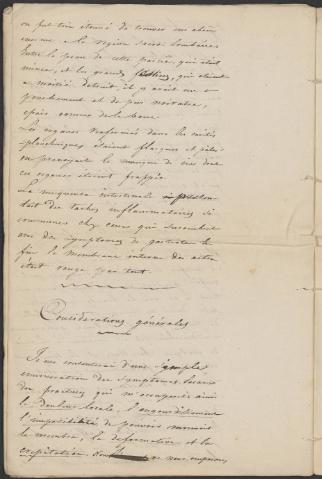 on fut très étonné de trouver un abcès
énorme à la région sacro lombaire
Entre la peau de cette partie, qui était
mince, et les grands fessiers, qui étaient
à moitié détruit, il y avait un
épanchement et de pus noirâtre,
épais comme de la boue.
Les organes renfermés dans les cavités
splanchniques étaient flasques et pâles
en prouvant le manque de vie dont
ces organes étaient frappés.
La muqueuse intestinale présen
tait des taches inflammatoires si
communes chez ceux qui succombent
avec des symptômes de gastrite
fin la membrane interne des artères
était rouge par tout.
Considérations générales
Je me contenterai d'une simple
énumération des symptômes locaux
des fractures qui m'occupent ainsi
la douleur locale, l'engourdissement
l'impossibilité de pouvoir mouvoir
le membre, la déformation et la
crépitation. nous